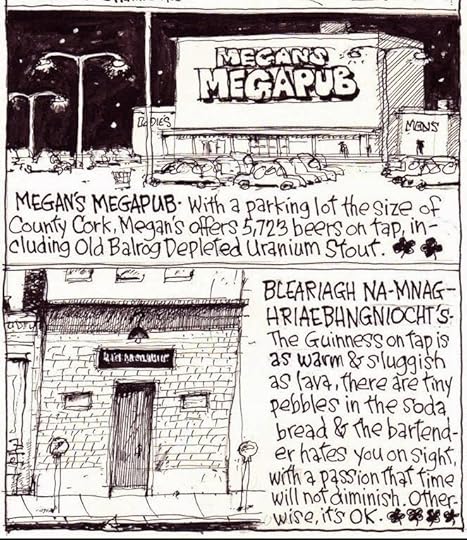 MEGAN'S
MEGAPUB
MENS
MEGAN'S MEGAPUB- With a parking lot the size of
County Cork, Megan's offers 5,723 beers on tap, in-
cluding Old Balrog Depleted Uranium Stout.
BLEARIAGH NA-MNAG-
HRIAEBHNGNIOCHT'S-
The Guinness on tap is
as warm & sluggish
as lava, there are tiny
pebbles in the soda
bread & the bartend-
er hates you on sight,
with a passion that time
will not diminish. Other-
wise, it's OK.